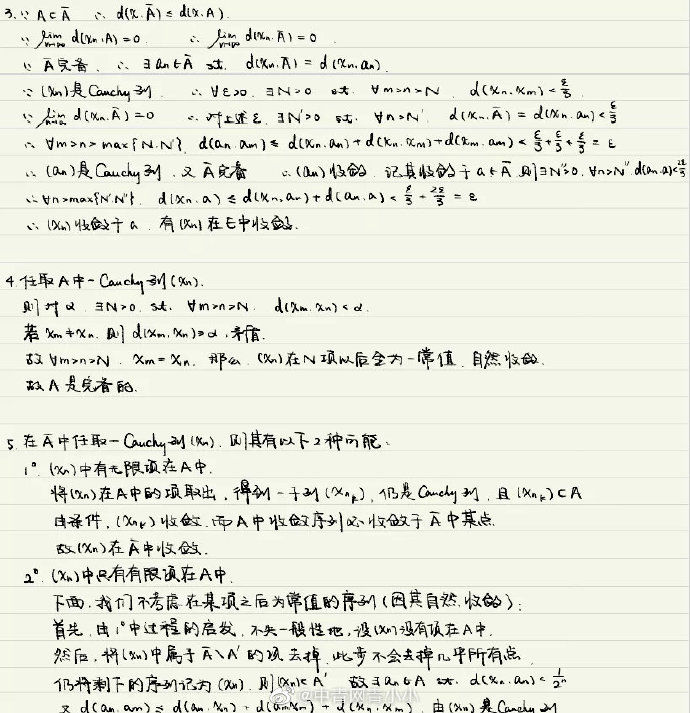 3. ∵ A⊂Ā ∴ d(x,Ā) ≤ d(x,A).
∵ lim_{n→∞} d(xₙ,A)=0 ∴ lim_{n→∞} d(xₙ,Ā)=0
∵ Ā完备 ∴ ∃aₙ∈Ā st. d(xₙ,Ā) = d(xₙ,aₙ)
∵ (xₙ)是Cauchy列 ∴ ∀ε>0, ∃N>0 st. ∀m>n>N, d(xₙ,xₘ)<ε/3
∵ lim_{n→∞} d(xₙ,Ā)=0 ∴ 对上述ε, ∃N'>0 st. ∀n>N' d(xₙ,Ā) = d(xₙ,aₙ)<ε/3
∴ ∀m>n>max{N,N'}, d(aₙ,aₘ) ≤ d(xₙ,aₙ)+d(xₙ,xₘ)+d(xₘ,aₘ) < ε/3+ε/3+ε/3 = ε
∴ (aₙ)是Cauchy列, 又Ā完备 ∴ (aₙ)收敛, 记其收敛于a∈Ā, 则∃N''>0, ∀n>N'', d(aₙ,a)<2ε/3
∴ ∀n>max{N',N''}, d(xₙ,a) ≤ d(xₙ,aₙ)+d(aₙ,a) < ε/3+2ε/3 = ε
∴ (xₙ)收敛于a, 有(xₙ)在E中收敛.
4. 任取A中一Cauchy列(xₙ).
则对α, ∃N>0, st. ∀m>n>N, d(xₘ,xₙ)<α.
若xₘ≠xₙ, 则d(xₘ,xₙ)≥α, 矛盾.
故∀m>n>N, xₘ=xₙ, 那么, (xₙ)在N项以后全为一常值, 自然收敛.
故A是完备的.
5. 在Ā中任取一Cauchy列(xₙ), 则其有以下2种可能:
1°. (xₙ)中有无限项在A中.
将(xₙ)在A中的项取出, 得到一子列(xₙₖ), 仍是Cauchy列, 且(xₙₖ)⊂A
由条件, (xₙₖ)收敛, 而A中收敛序列必收敛于Ā中某点
故(xₙ)在Ā中收敛.
2°. (xₙ)中只有有限项在A中.
下面, 我们不考虑在某项之后为常值的序列(因其自然收敛):
首先, 由1°中过程的启发, 不失一般性地, 设(xₙ)没有项在A中.
然后, 将(xₙ)中属于Ā\A'的项去掉, 此步不会去掉几乎所有点
仍将剩下的序列记为(xₙ), 则(xₙ)⊂A' 故∃aₙ∈A st. d(xₙ,aₙ)<1/2ⁿ
又d(aₙ,aₘ) ≤ d(aₙ,xₙ)+d(aₘ,xₘ)+d(xₙ,xₘ), 由(xₙ)是Cauchy列
@中青网吉小小